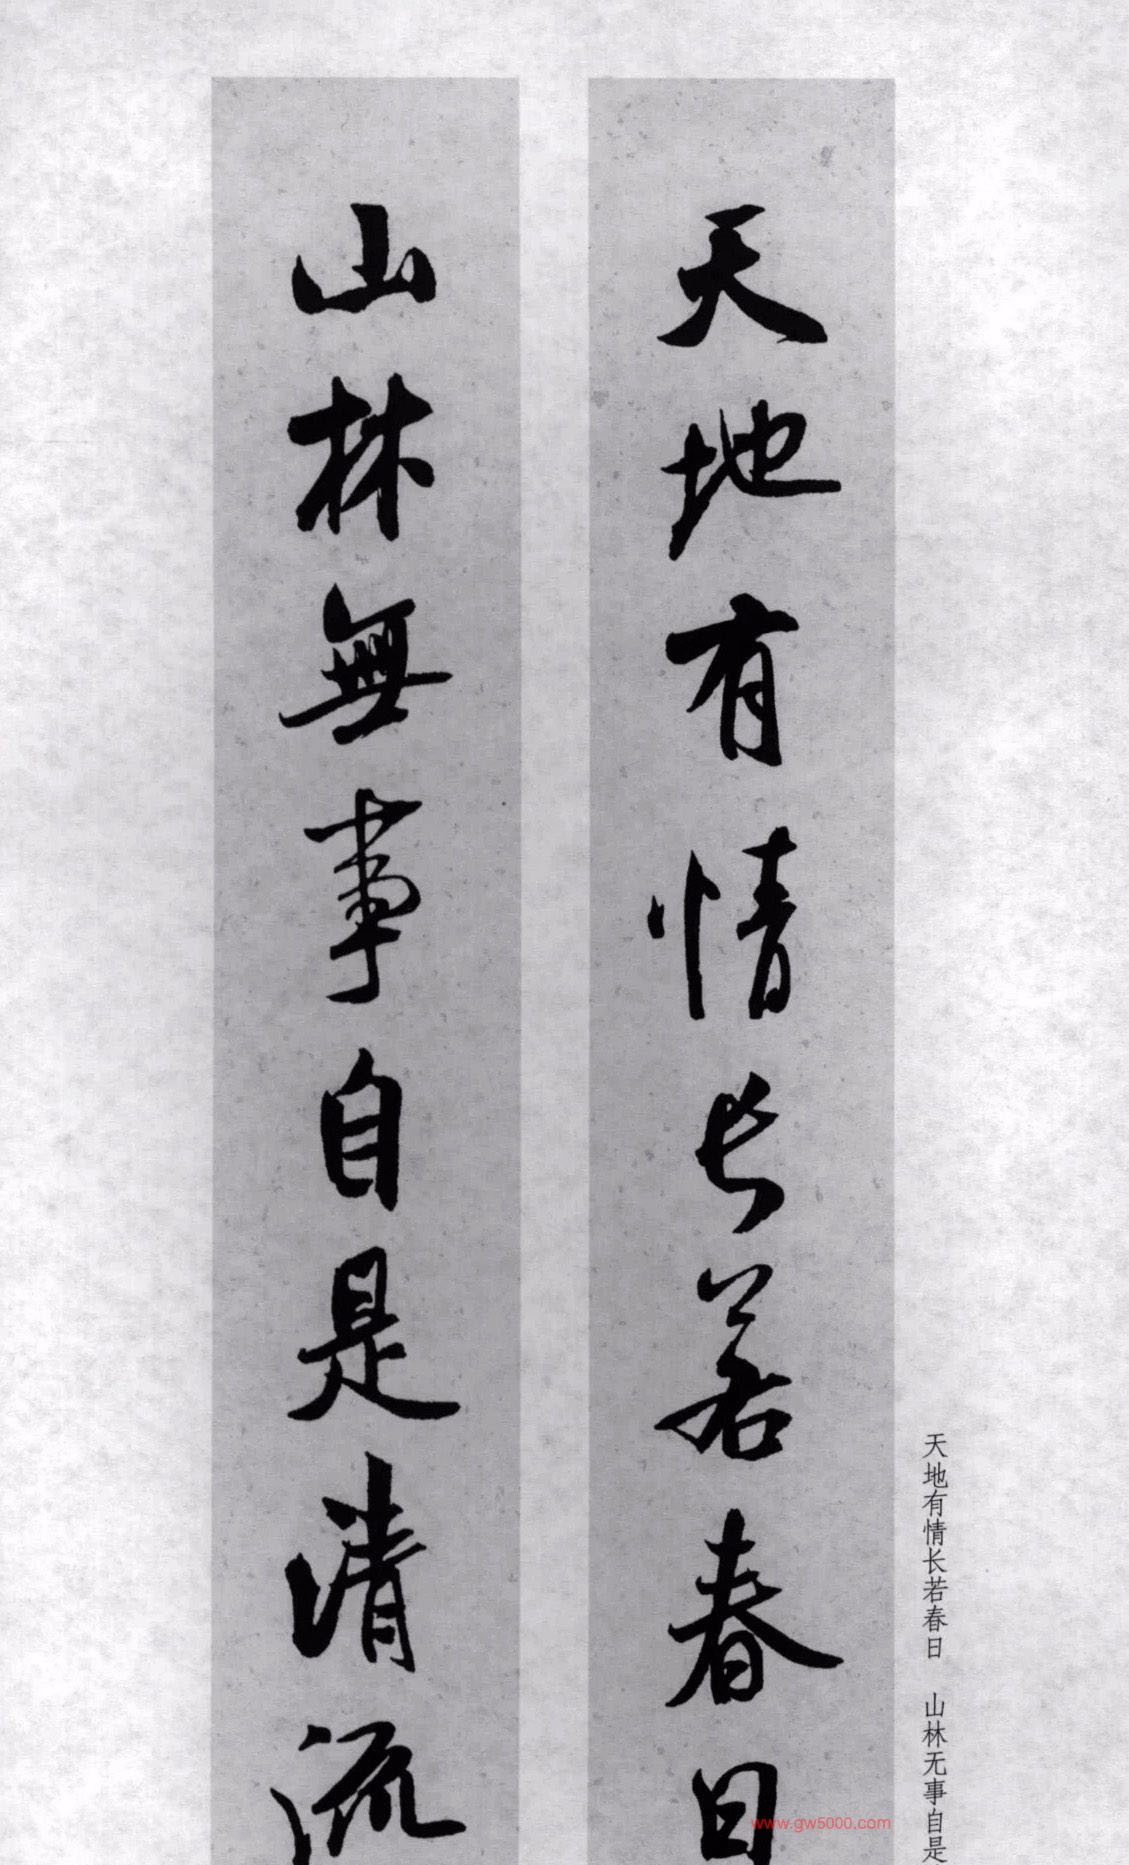 天地有情长若春日　山林无事自是
天地有情長若春日
山林無事自是清流
www.gw5000.com